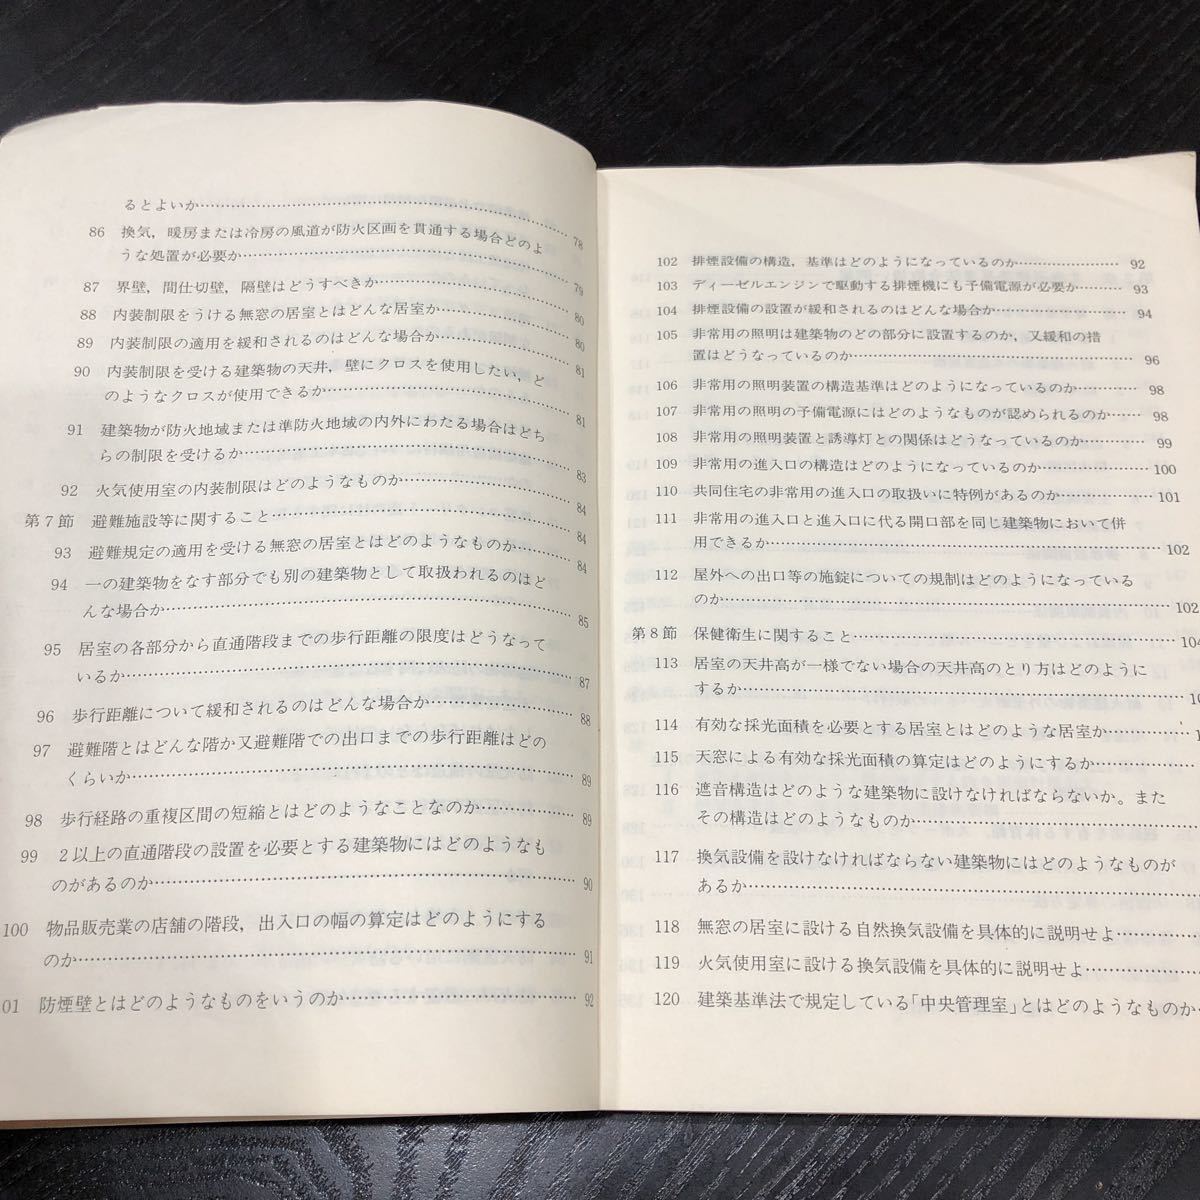 るとよいか…………………………………………78
86 換気，暖房または冷房の風道が防火区画を貫通する場合どのよ
うな処置が必要か…………………………………79
87 界壁，間仕切壁，隔壁はどうすべきか……………80
88 内装制限をうける無窓の居室とはどんな居室か……80
89 内装制限の適用を緩和されるのはどんな場合か……81
90 内装制限を受ける建築物の天井，壁にクロスを使用したい，ど
のようなクロスが使用できるか……………………81
91 建築物が防火地域または準防火地域の内外にわたる場合はどち
らの制限を受けるか…………………………………83
92 火気使用室の内装制限はどのようなものか…………84
第7節 避難施設等に関すること……………………84
93 避難規定の適用を受ける無窓の居室とはどのようなものか……84
94 一の建築物をなす部分でも別の建築物として取扱われるのはど
んな場合か……………………………………………85
95 居室の各部分から直通階段までの歩行距離の限度はどうなって
いるか…………………………………………………87
96 歩行距離について緩和されるのはどんな場合か……88
97 避難階とはどんな階か又避難階での出口までの歩行距離はどの
くらいか………………………………………………89
98 歩行経路の重複区間の短縮とはどのようなことなのか………89
99 2以上の直通階段の設置を必要とする建築物にはどのようなも
のがあるのか…………………………………………90
100 物品販売業の店舗の階段，出入口の幅の算定はどのようにする
のか……………………………………………………91
01 防煙壁とはどのようなものをいうのか……………92
102 排煙設備の構造，基準はどのようになっているのか………92
103 ディーゼルエンジンで駆動する排煙機にも予備電源が必要か……93
104 排煙設備の設置が緩和されるのはどんな場合か………94
105 非常用の照明は建築物のどの部分に設置するのか，又緩和の措
置はどうなっているのか………………………………96
106 非常用の照明装置の構造基準はどのようになっているのか……98
107 非常用の照明の予備電源にはどのようなものが認められるのか……98
108 非常用の照明装置と誘導灯との関係はどうなっているのか……99
109 非常用の進入口の構造はどのようになっているのか………100
110 共同住宅の非常用の進入口の取扱いに特例があるのか………101
111 非常用の進入口と進入口に代る開口部を同じ建築物において併
用できるか……………………………………………102
112 屋外への出口等の施錠についての規制はどのようになっている
のか……………………………………………………102
第8節 保健衛生に関すること………………………104
113 居室の天井高が一様でない場合の天井高のとり方はどのように
するか…………………………………………………
114 有効な採光面積を必要とする居室とはどのような居室か………
115 天窓による有効な採光面積の算定はどのようにするか………
116 遮音構造はどのような建築物に設けなければならないか。また
その構造はどのようなものか…………………………
117 換気設備を設けなければならない建築物にはどのようなものが
あるか…………………………………………………
118 無窓の居室に設ける自然換気設備を具体的に説明せよ………
119 火気使用室に設ける換気設備を具体的に説明せよ………
120 建築基準法で規定している「中央管理室」とはどのようなものか…